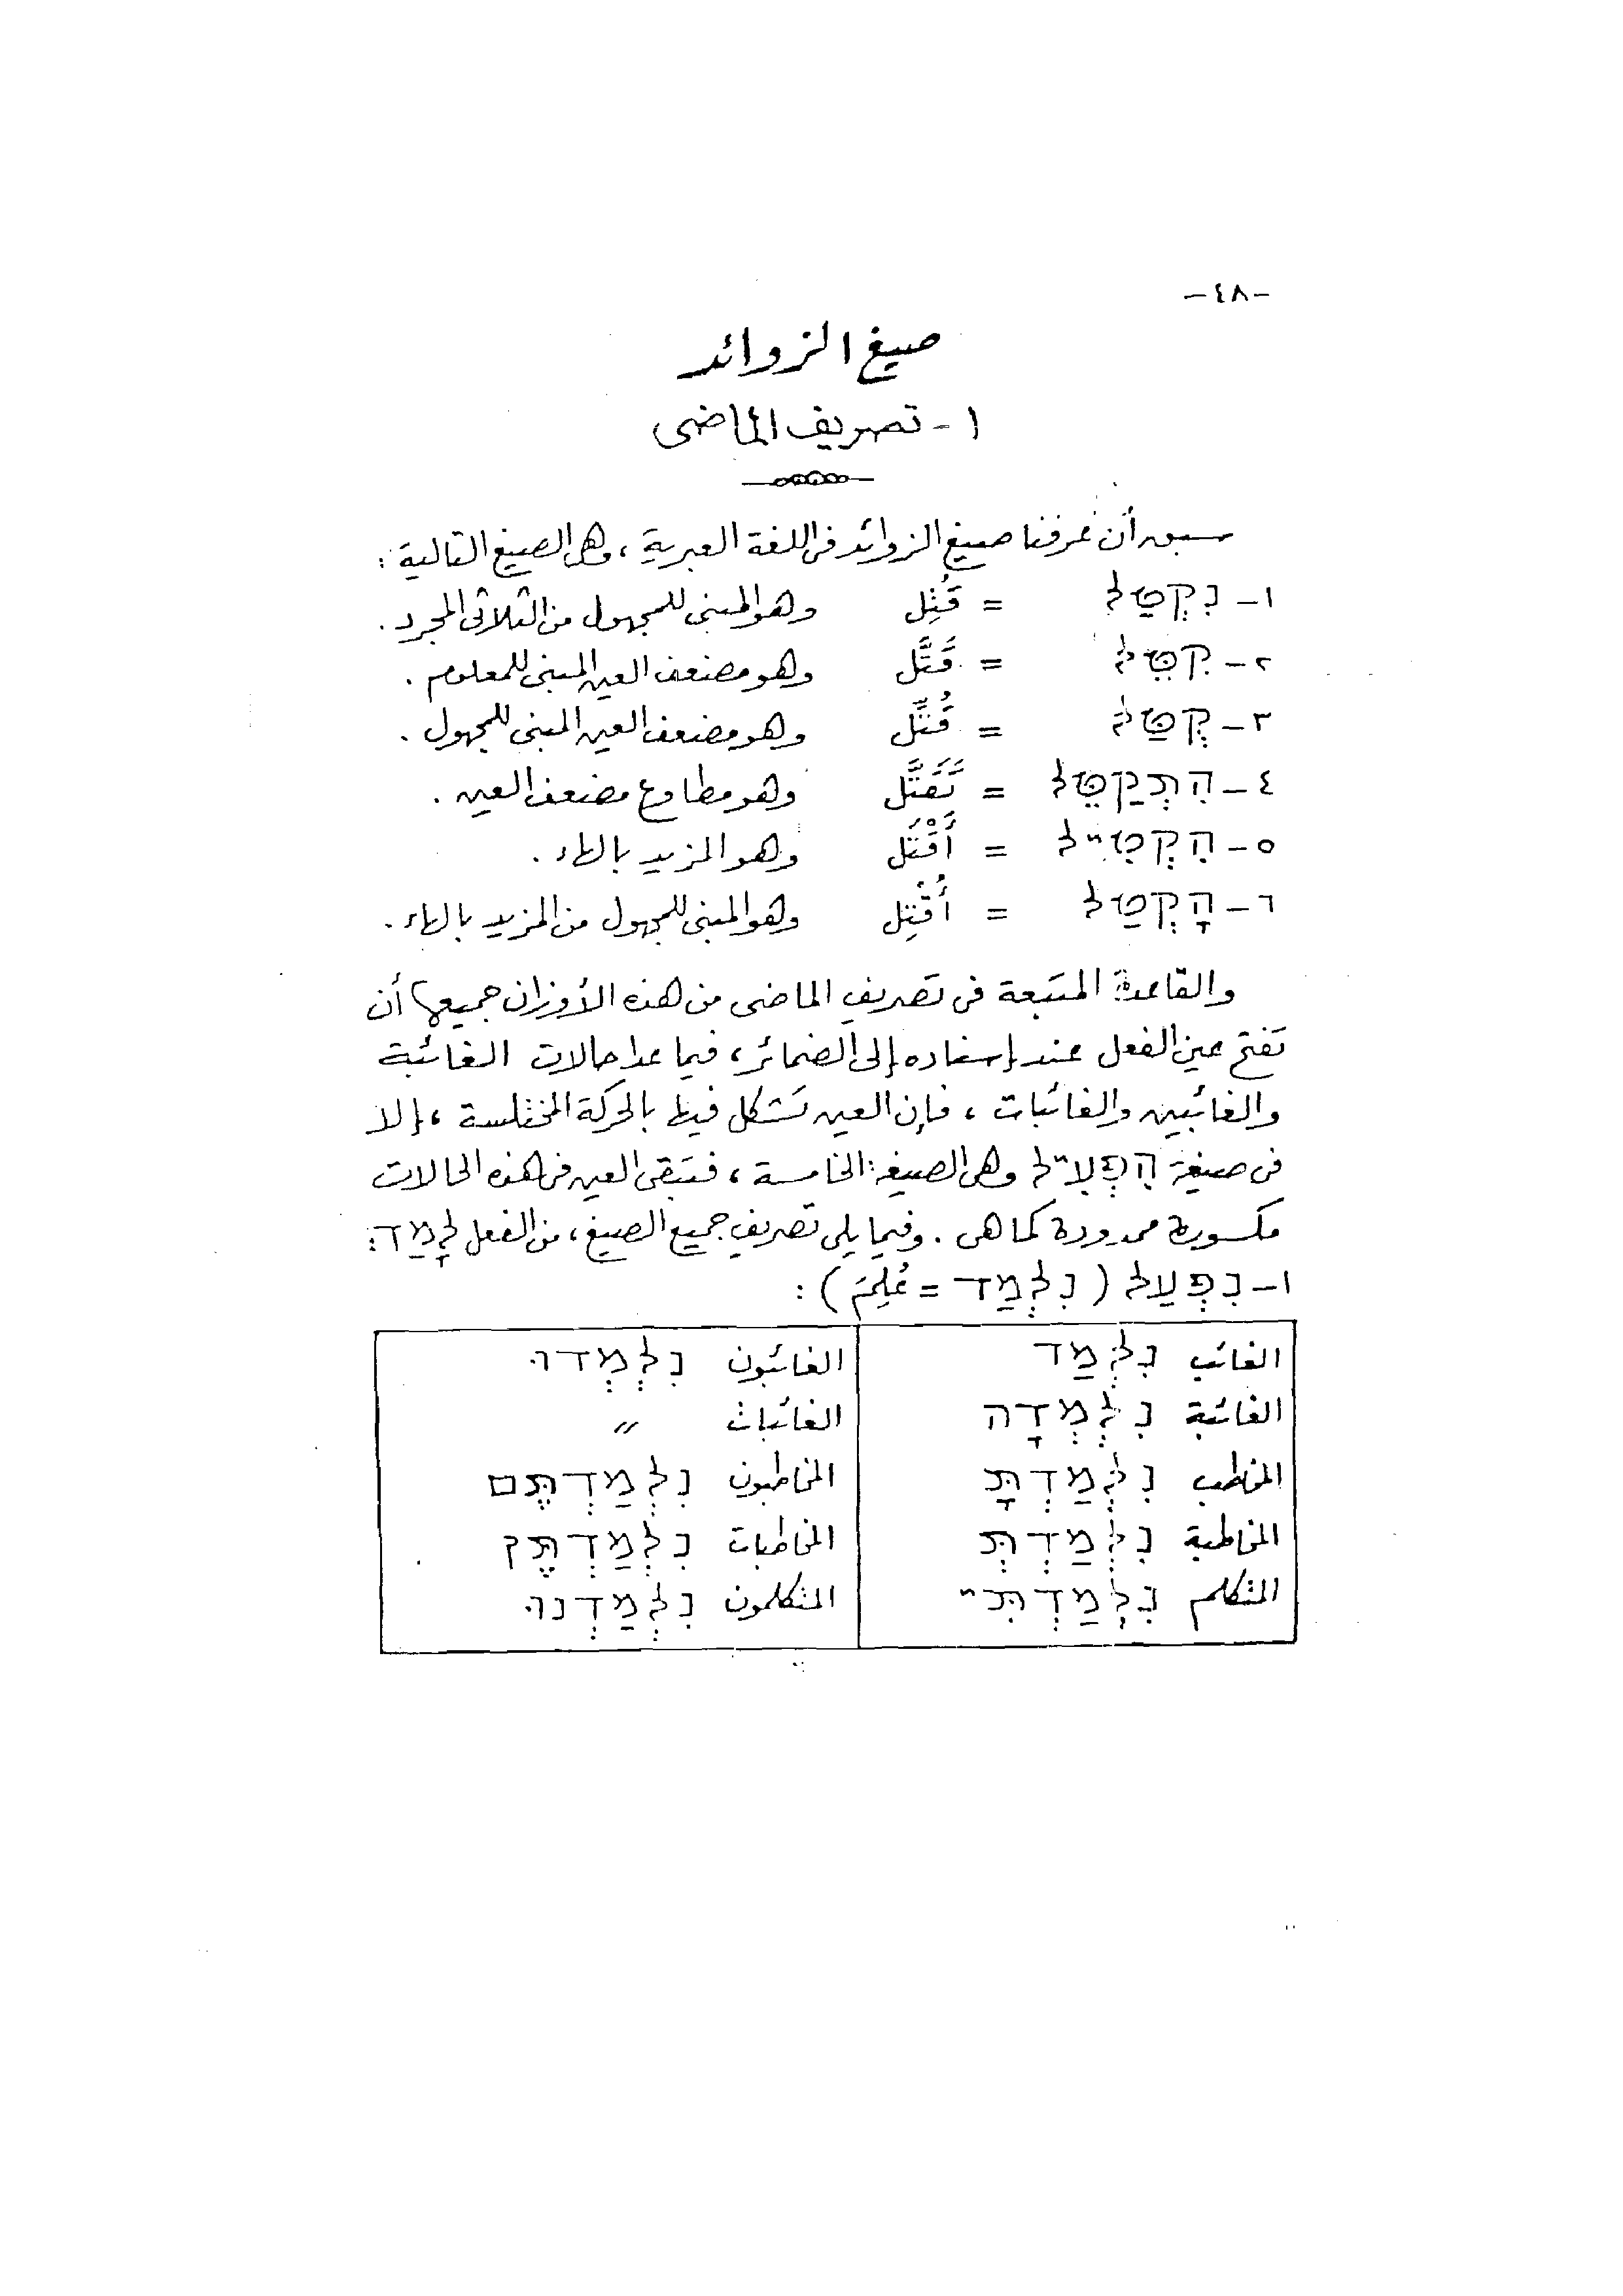 -٤٨-
صيغ الزوائد
١- تصريف الماضى
سبق أن عرفنا صيغ الزوائد فى اللغة العبرية ، وهى الصيغ التالية :
١- נִקְטַל = قُتِل وهو المبنى للمجهول من الثلاثى المجرد .
٢- קִטֵּל = قَتَّل وهو مضعف العين المبنى للمعلوم .
٣- קֻטַּל = قُتِّل وهو مضعف العين المبنى للمجهول .
٤- הִתְקַטֵּל = تَقَتَّل وهو مطاوع مضعف العين .
٥- הִקְטִיל = أَقْتَل وهو المزيد بالهاء .
٦- הָקְטַל = أُقْتِل وهو المبنى للمجهول من المزيد بالهاء .
والقاعدة المتبعة فى تصريف الماضى من هذه الأوزان جميعها أن
تفتح عين الفعل عند إسناده إلى الضمائر ، فيما عدا حالات الغائبة
والغائبين والغائبات ، فإن العين تشكل فيها بالحركة المختلسة ، إلا
فى صيغة הִפְעִיל وهى الصيغة الخامسة ، فتبقى العين فى هذه الحالات
مكسورة ممدودة كما هى . وفيما يلى تصريف جميع الصيغ ، من الفعل לָמַד :
١- נִפְעַל ( נִלְמַד = عُلِمَ ) :
الغائب נִלְמַד الغائبون נִלְמְדוּ
الغائبة נִלְמְדָה الغائبات 〃
المخاطب נִלְמַדְתָּ المخاطبون נִלְמַדְתֶּם
المخاطبة נִלְמַדְתְּ المخاطبات נִלְמַדְתֶּן
المتكلم נִלְמַדְתִּי المتكلمون נִלְמַדְנוּ